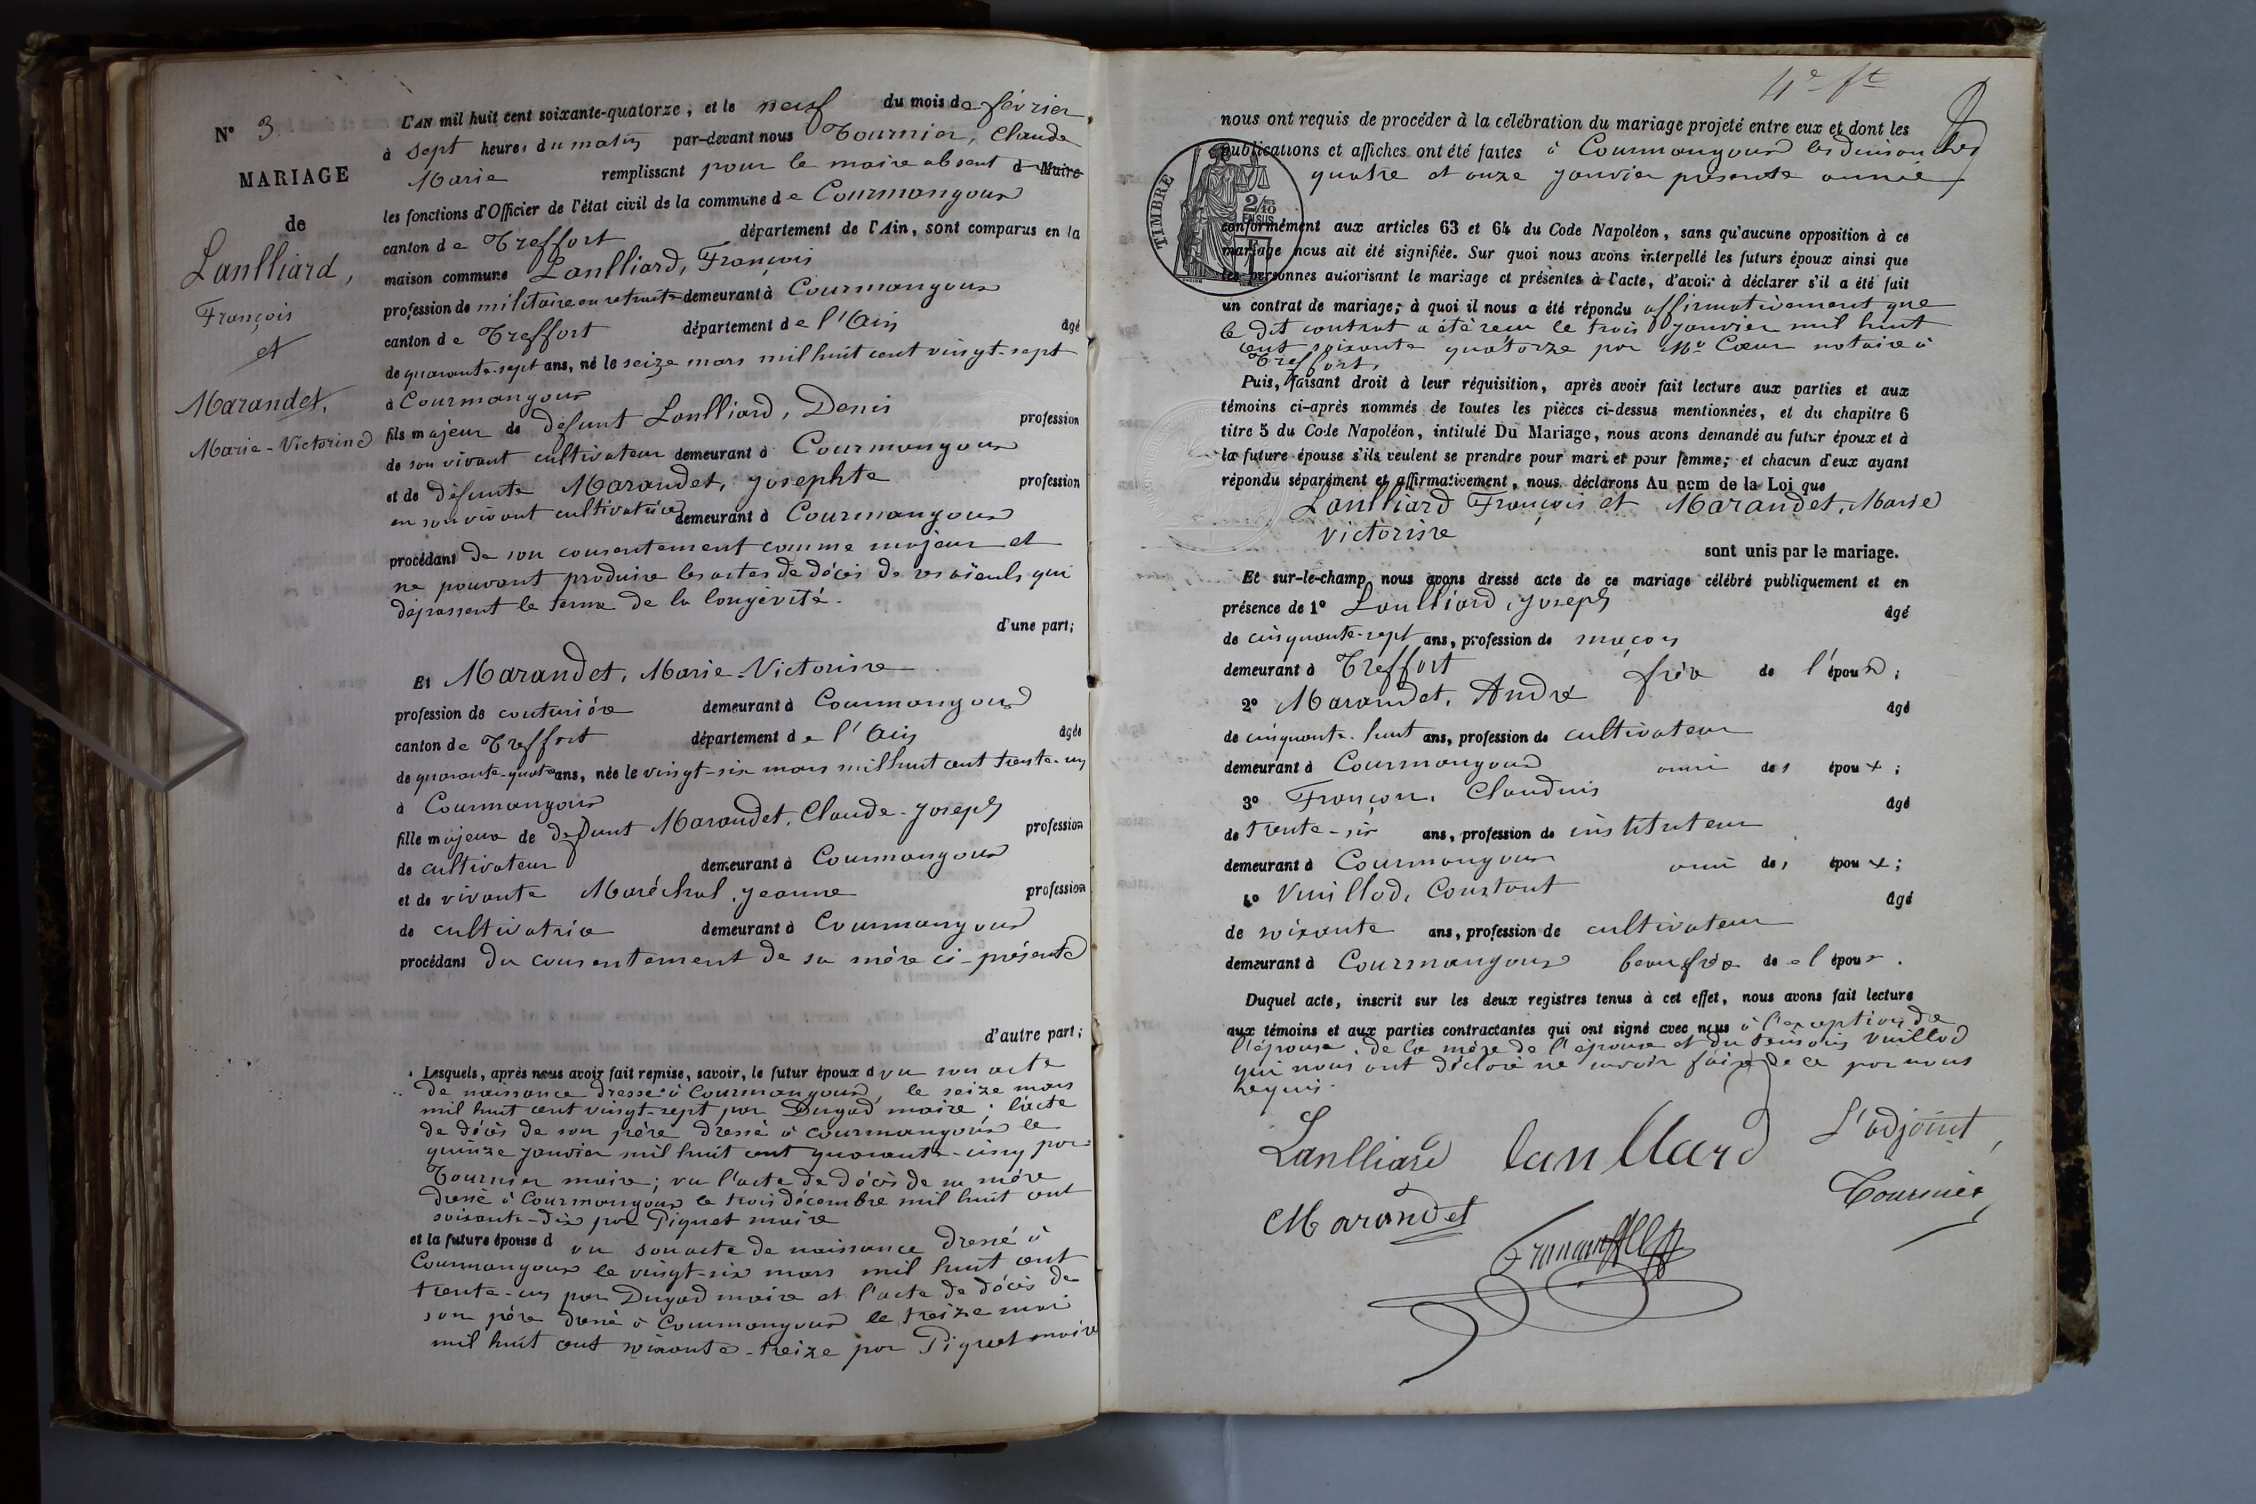 N° 3
MARIAGE
de
Lanlliard,
François
et
Marandet,
Marie-Victorine
L'AN mil huit cent soixante-quatorze, et le neuf du mois de février,
à sept heures du matin par-devant nous Tournier, Claude
Marie remplissant pour le maire absent d Maire
les fonctions d'Officier de l'état civil de la commune de Courmangoux
canton de Treffort département de l'Ain, sont comparus en la
maison commune Lanlliard, François
profession de militaire en retraite demeurant à Courmangoux
canton de Treffort département de l'Ain âgé
de quarante-sept ans, né le seize mars mil huit cent vingt-sept
à Courmangoux
fils majeur de defunt Lanlliard, Denis profession
de son vivant cultivateur demeurant à Courmangoux
et de défunte Marandet, Josephte profession
en son vivant cultivatrice demeurant à Courmangoux
procédant de son consentement comme majeur et
ne pouvant produire les actes de décès de ses aïeuls qui
dépassent le terme de la longevité.
d'une part;
Et Marandet, Marie-Victorine
profession de couturière demeurant à Courmangoux
canton de Treffort département de l'Ain âgée
de quarante-quatre ans, née le vingt-six mars mil huit cent trente-un
à Courmangoux
fille majeure de defunt Marandet, Claude-Joseph profession
de cultivateur demeurant à Courmangoux
et de vivante Maréchal, Jeanne profession
de cultivatrice demeurant à Courmangoux
procédant du consentement de sa mère ci-présente
d'autre part;
Lesquels, après nous avoir fait remise, savoir, le futur époux d vu son acte
de naissance dressé à Courmangoux, le seize mars
mil huit cent vingt-sept par Dugad maire; l'acte
de décès de son père dressé à Courmangoux le
quinze janvier mil huit cent quarante-cinq par
Tournier maire; vu l'acte de décès de sa mère
dressé à Courmangoux le trois décembre mil huit cent
soixante-dix par Piquet maire
et la future épouse d vu son acte de naissance dressé à
Courmangoux le vingt-six mars mil huit cent
trente-un par Dugad maire et l'acte de décès de
son père dressé à Courmangoux le treize mai
mil huit cent soixante-treize par Piquet maire
4e ft
nous ont requis de procéder à la célébration du mariage projeté entre eux et dont les
publications et affiches ont été faites à Courmangoux les dimanches
quatre et onze janvier présente année
TIMBRE
2/10
EN SUS
conformément aux articles 63 et 64 du Code Napoléon, sans qu'aucune opposition à ce
mariage nous ait été signifiée. Sur quoi nous avons interpellé les futurs époux ainsi que
les personnes autorisant le mariage et présentes à l'acte, d'avoir à déclarer s'il a été fait
un contrat de mariage; à quoi il nous a été répondu affirmativement que
le dit contrat a été reçu le trois janvier mil huit
cent soixante quatorze par Me Cœur notaire à
Treffort,
Puis, faisant droit à leur réquisition, après avoir fait lecture aux parties et aux
témoins ci-après nommés de toutes les pièces ci-dessus mentionnées, et du chapitre 6
titre 5 du Code Napoléon, intitulé Du Mariage, nous avons demandé au futur époux et à
la future épouse s'ils veulent se prendre pour mari et pour femme; et chacun d'eux ayant
répondu séparément et affirmativement, nous déclarons Au nom de la Loi que
Lanlliard François et Marandet, Marie
Victorine
sont unis par le mariage.
Et sur-le-champ nous avons dressé acte de ce mariage célébré publiquement et en
présence de 1° Lanlliard, Joseph âgé
de cinquante-sept ans, profession de maçon
demeurant à Treffort frère de l'époux;
2° Marandet, André âgé
de cinquante-huit ans, profession de cultivateur
demeurant à Courmangoux ami des époux;
3° Françon, Claudius âgé
de trente-six ans, profession de instituteur
demeurant à Courmangoux ami des époux;
4° Vuillod, Constant âgé
de soixante ans, profession de cultivateur
demeurant à Courmangoux beau frère de l époux.
Duquel acte, inscrit sur les deux registres tenus à cet effet, nous avons fait lecture
aux témoins et aux parties contractantes qui ont signé avec nous à l'exception de
l'épouse, de la mère de l'épouse et du témoin Vuillod
qui nous ont déclaré ne savoir faire de ce par nous
requis.
Lanlliard Lanlliard L'adjoint,
Marandet Tournier